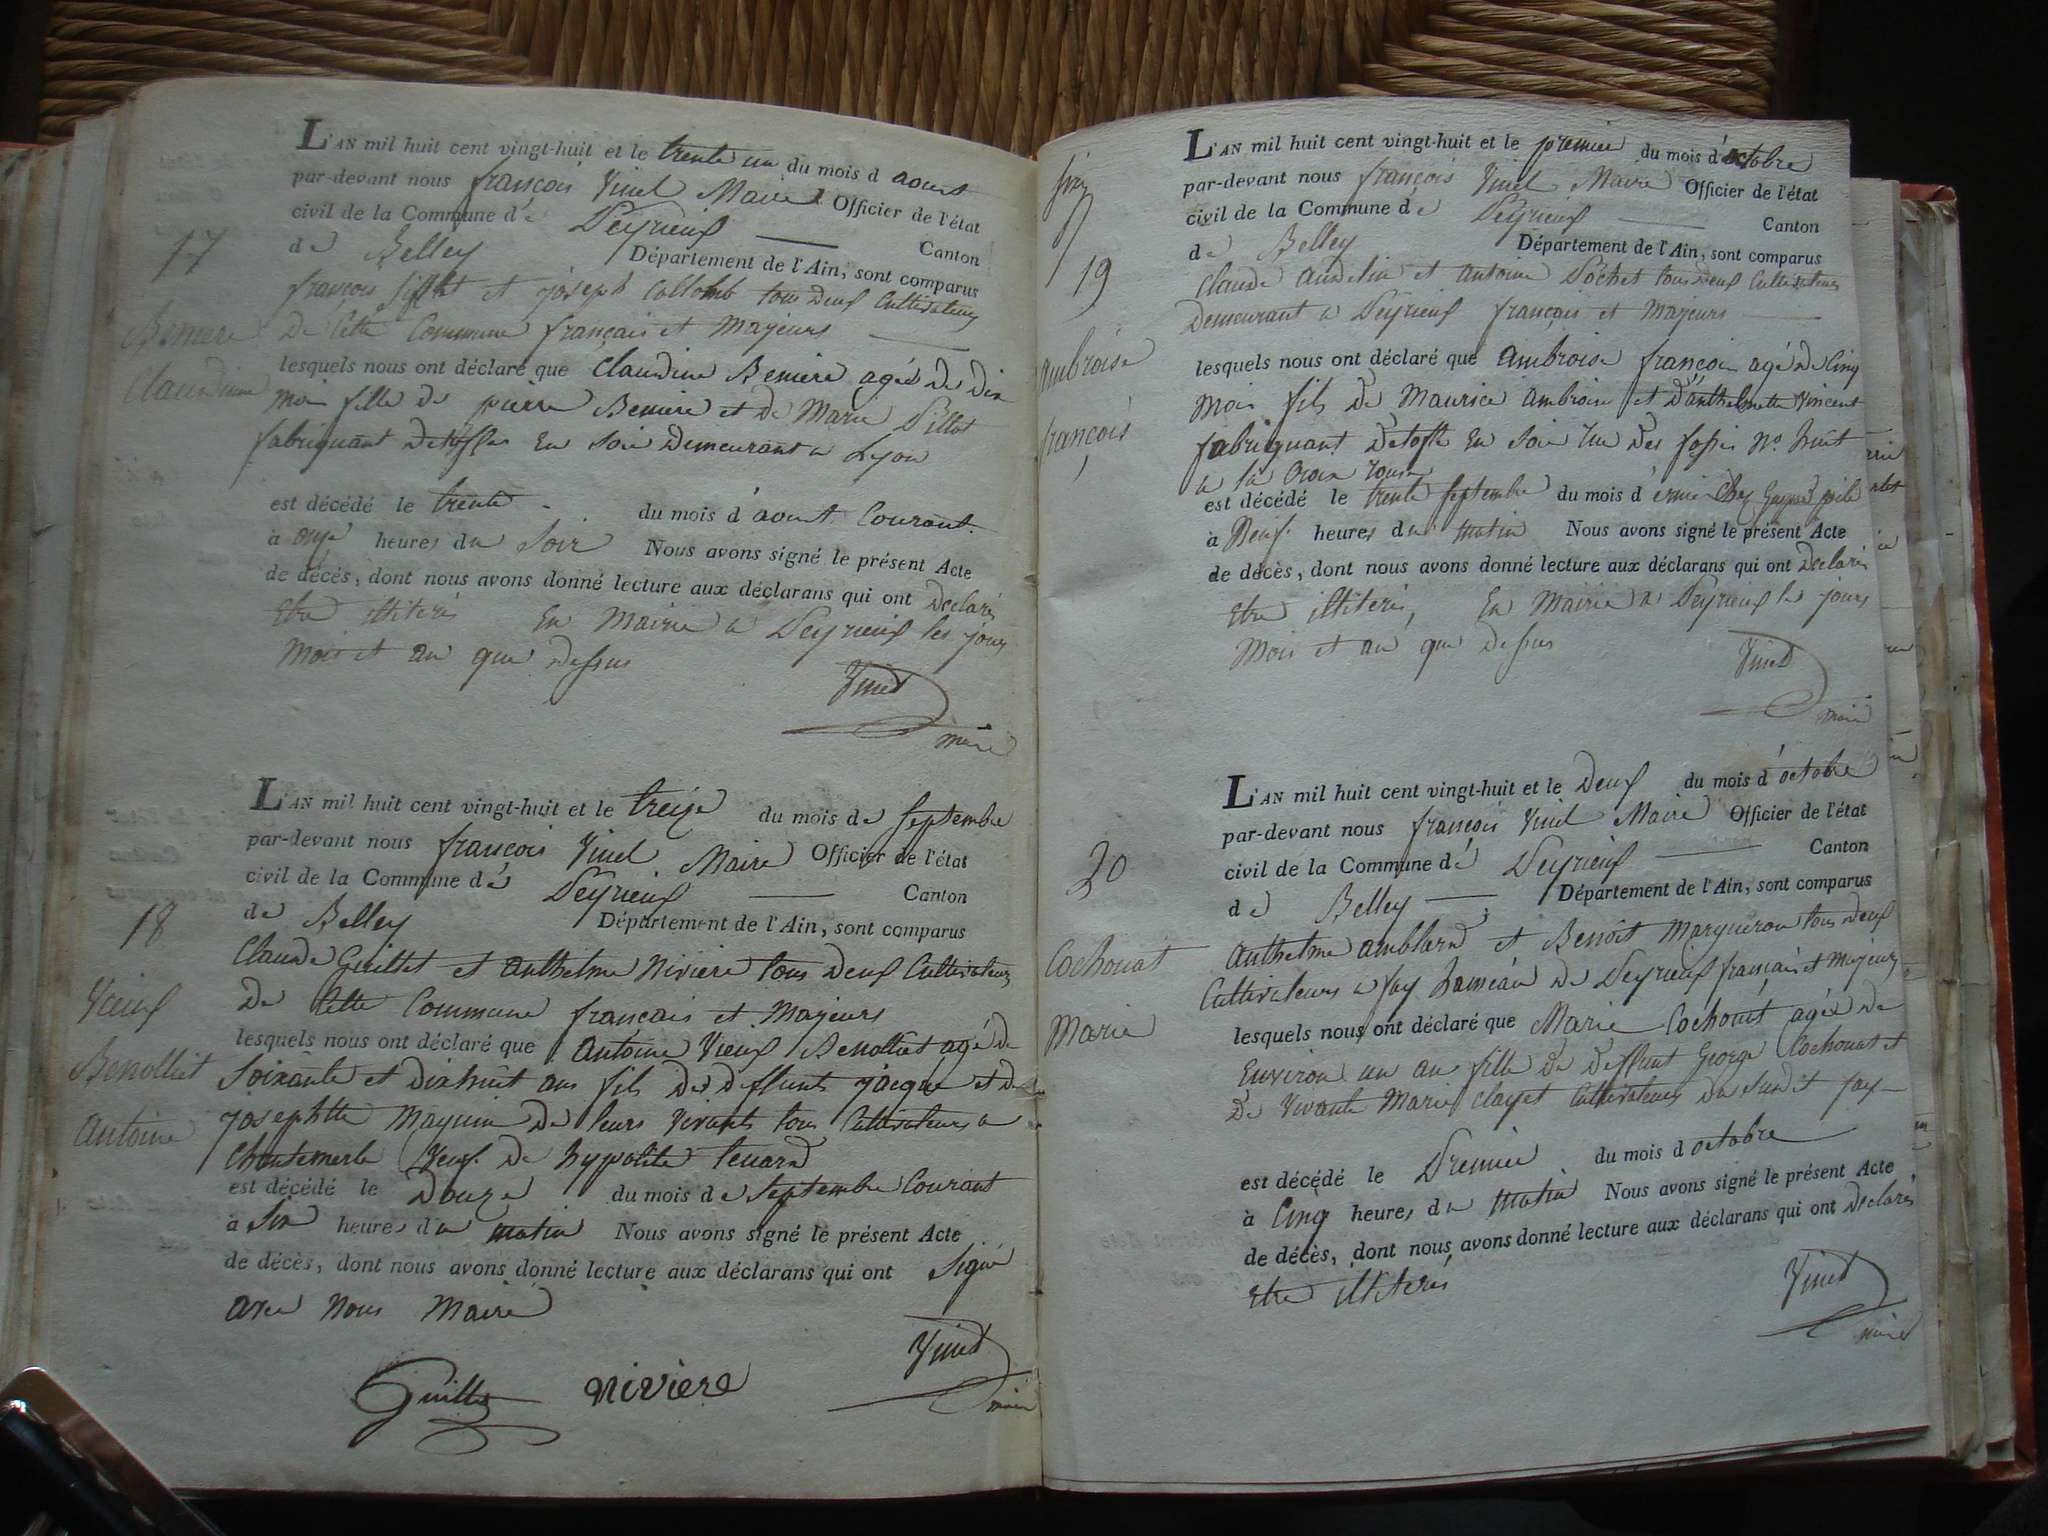 L'AN mil huit cent vingt-huit et le trente un du mois d aout
par-devant nous françois Vinet Maire Officier de l'état
civil de la Commune de Peyrieux Canton
de Belley Département de l'Ain, sont comparus
françois et joseph Collomb tous deux Cultivateurs
17
De Cette Commune français et Majeurs
Beniere
lesquels nous ont déclaré que Claudine Beniere agée de dix
Claudine
mois fille de pierre Beniere et de Marie Pillot
fabriquant En Soie Demeurant a Lyon
est décédé le trente du mois d'aout Courant
à onze heures du Soir Nous avons signé le présent Acte
de décès, dont nous avons donné lecture aux déclarans qui ont Declarés
Etre illiterés En Mairie a Peyrieux les jours
Mois et an que dessus
Vinet
maire
L'AN mil huit cent vingt-huit et le treize du mois de Septembre
par-devant nous françois Vinet Maire Officier de l'état
civil de la Commune de Peyrieux Canton
de Belley Département de l'Ain, sont comparus
18
Claude Guillet et anthelme Niviere tous deux Cultivateurs
De Cette Commune français et Majeurs
Vieux
lesquels nous ont déclaré que Antoine Vieux Benolliet agé de
Benolliet
Soixante et dixhuit ans fils des deffunts jacque et de
Antoine
josephtte Magnin De leurs Vivants tous Cultivateurs a
Chantemerle Veuf De hypolite tenard
est décédé le Douze du mois de Septembre Courant
à Six heures du matin Nous avons signé le présent Acte
de décès, dont nous avons donné lecture aux déclarans qui ont Signé
avec Nous Maire
Vinet
maire
Guillet niviere
L'AN mil huit cent vingt-huit et le premier du mois d'octobre
par-devant nous françois Vinet Maire Officier de l'état
civil de la Commune de Peyrieux Canton
de Belley Département de l'Ain, sont comparus
19
Claude Andelin et Antoine Pochet tous deux Cultivateurs
Demeurant a Peyrieux français et Majeurs
ambroise
lesquels nous ont déclaré que ambroise françois agé de Cinq
Mois fils de Maurice ambroise et d'anthelmette Vincent
françois
fabriquant En Soie rue des fossés No. huit
a la Croix rousse
est décédé le trente Septembre du mois d
à Neuf heures du matin Nous avons signé le présent Acte
de décès, dont nous avons donné lecture aux déclarans qui ont Declarés
Etre illiterés, En Mairie a Peyrieux les jours
Mois et an que Dessus
Vinet
maire
L'AN mil huit cent vingt-huit et le Deux du mois d'octobre
par-devant nous françois Vinet Maire Officier de l'état
civil de la Commune de Peyrieux Canton
20
de Belley Département de l'Ain, sont comparus
Cochonat
Anthelme amblard et Benoît Margueron tous deux
Cultivateurs a fay hameau de Peyrieux français et Majeurs
Marie
lesquels nous ont déclaré que Marie Cochonat agée de
Environ un an fille de deffunt George Cochonat et
De Vivante Marie clayet Cultivateurs du Susdit fay
est décédé le Premier du mois d octobre
à Cinq heures du matin Nous avons signé le présent Acte
de décès, dont nous avons donné lecture aux déclarans qui ont Declarés
Etre illiterés
Vinet
maire